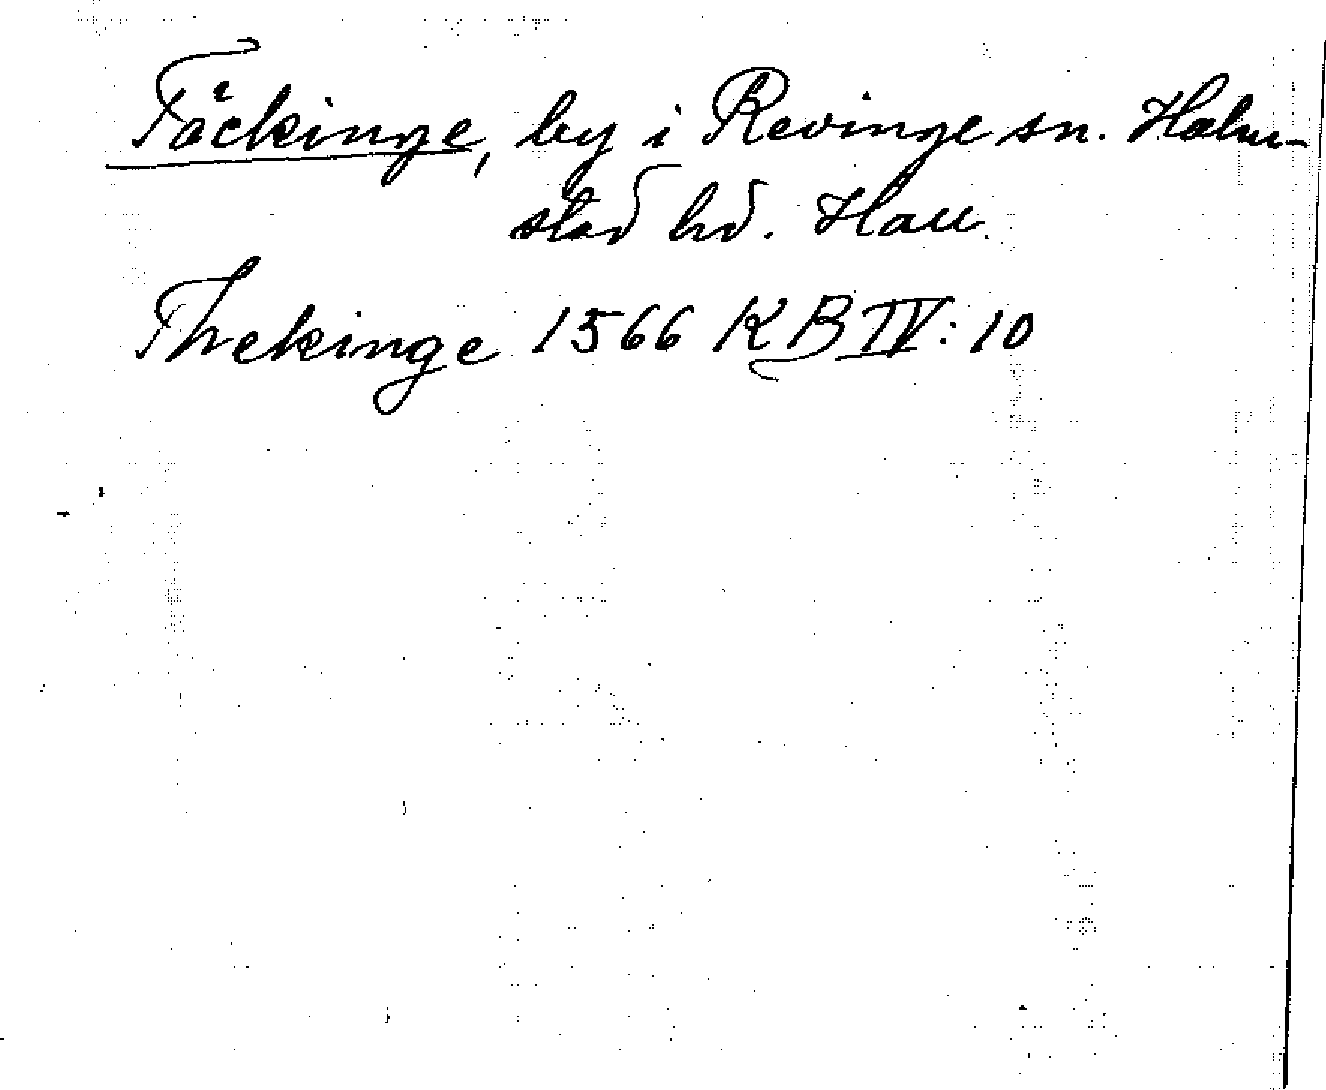 Täckinge, by i Revinge sn. Halm-
stad hd. Hall.
Thekinge 1566 KB IV: 10